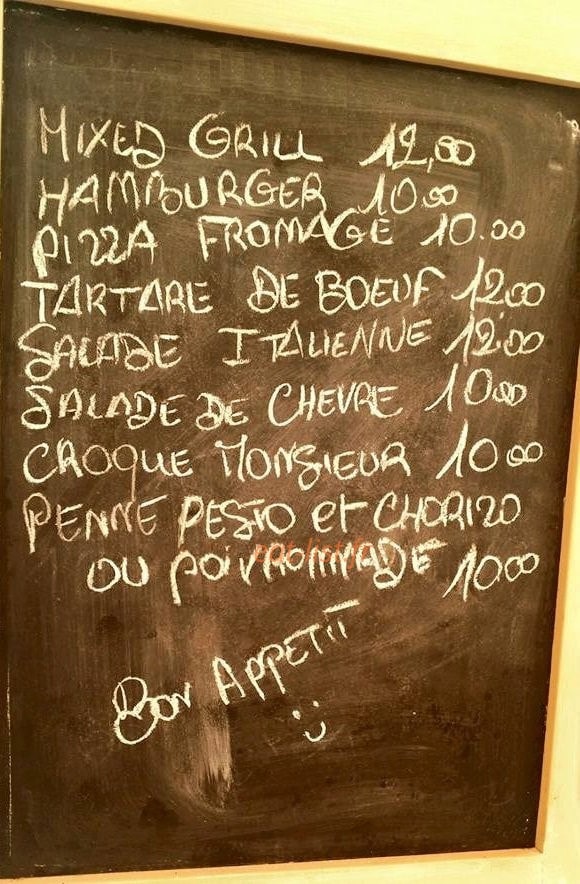 MIXED GRILL 12,00
HAMBURGER 10.00
PIZZA FROMAGE 10.00
TARTARE DE BOEUF 12.00
SALADE ITALIENNE 12.00
SALADE DE CHEVRE 10.00
CROQUE MONSIEUR 10.00
PENNE PESTO et CHORIZO
OU POIVRONNADE 10.00
BON APPETIT